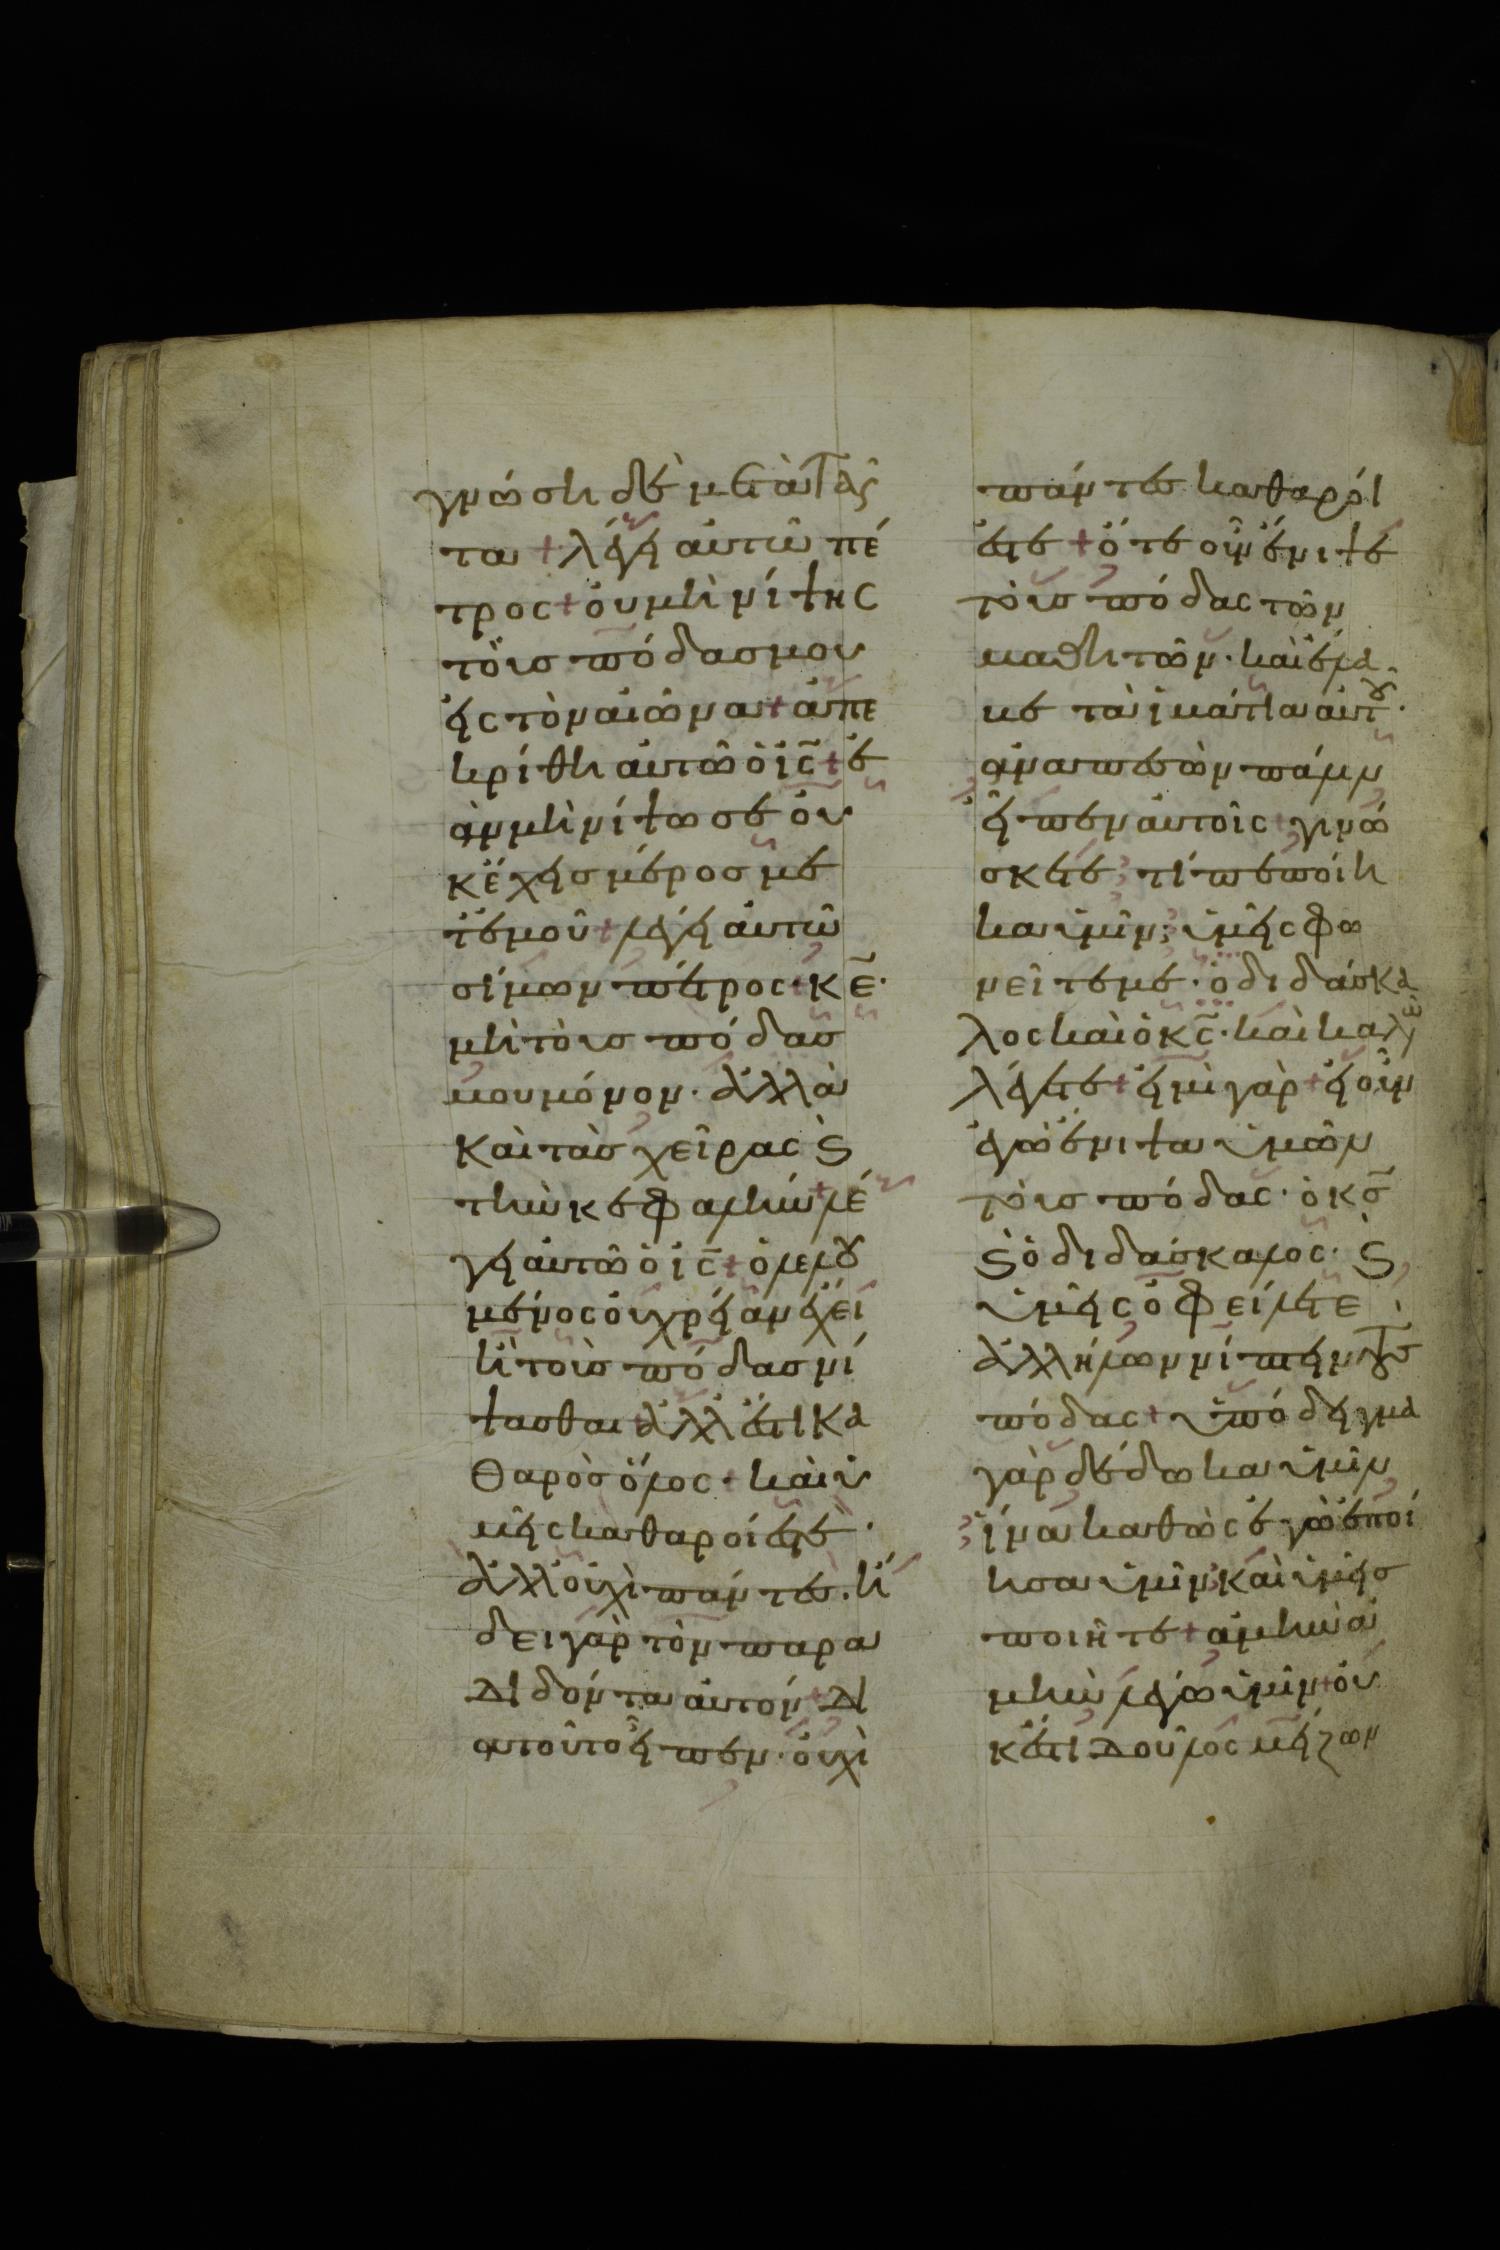 γνώση δὲ μετὰ ταῦ
τα + λέγει αὐτῶ πέ
τρος + οὐ μὴ νίψης
τοὺς πόδας μου
εἰς τὸν αἰῶνα + ἀπε
κρίθη αὐτῶ ὁ ἰς̅ + ἐ
ὰν μὴ νίψω σε οὐ
κ ἔχεις μέρος με
τ ἐμοῦ + λέγει αὐτῶ
σίμων πέτρος + κε̅ ·
μὴ τοὺς πόδας
μου μόνον · ἀλλὰ
καὶ τὰς χεῖρας ϗ
τὴν κεφαλήν + λέ
γει αὐτῶ ὁ ἰς̅ + ὁ λελου
μένος οὐ χρείαν ἔχει
ἢ τοὺς πόδας νί
ψασθαι + ἀλλ ἔστι κα
θαρὸς ὅλος + καὶ ὑ
μεῖς καθαροί ἐστε ·
ἀλλ οὐχὶ πάντες · ἤ
δει γὰρ τὸν παρα
διδόντα αὐτόν + δι
α τοῦτο εἶπεν · οὐχὶ
πάντες καθαροί
ἐστε + ὅτε οὖν ἔνιψε
τοὺς πόδας τῶν
μαθητῶν · καὶ ἔλα
βε τὰ ἱμάτια αὐτοῦ ·
ἀναπεσὼν πάλιν
εἶπεν αὐτοῖς + γινώ
σκετε τί πεποίη
κα ὑμῖν ; ὑμεῖς φω
νεῖτέ με · ὁ διδάσκα
λος καὶ ὁ κς̅ · καὶ καλῶς
λέγετε + εἰμὶ γὰρ + εἰ οὖν
ἐγὼ ἔνιψα ὑμῶν
τοὺς πόδας · ὁ κς̅
ϗ ὁ διδάσκαλος · ϗ
ὑμεῖς ὀφείλετε
ἀλλήλων νίπτειν τοὺς
πόδας + ὑπόδειγμα
γὰρ δέδωκα ὑμῖν
ἵνα καθὼς ἐγὼ ἐποί
ησα ὑμῖν καὶ ὑμεῖς
ποιῆτε + ἀμὴν ἀ
μὴν λέγω ὑμῖν + οὐ
κ ἔστι δοῦλος μείζων